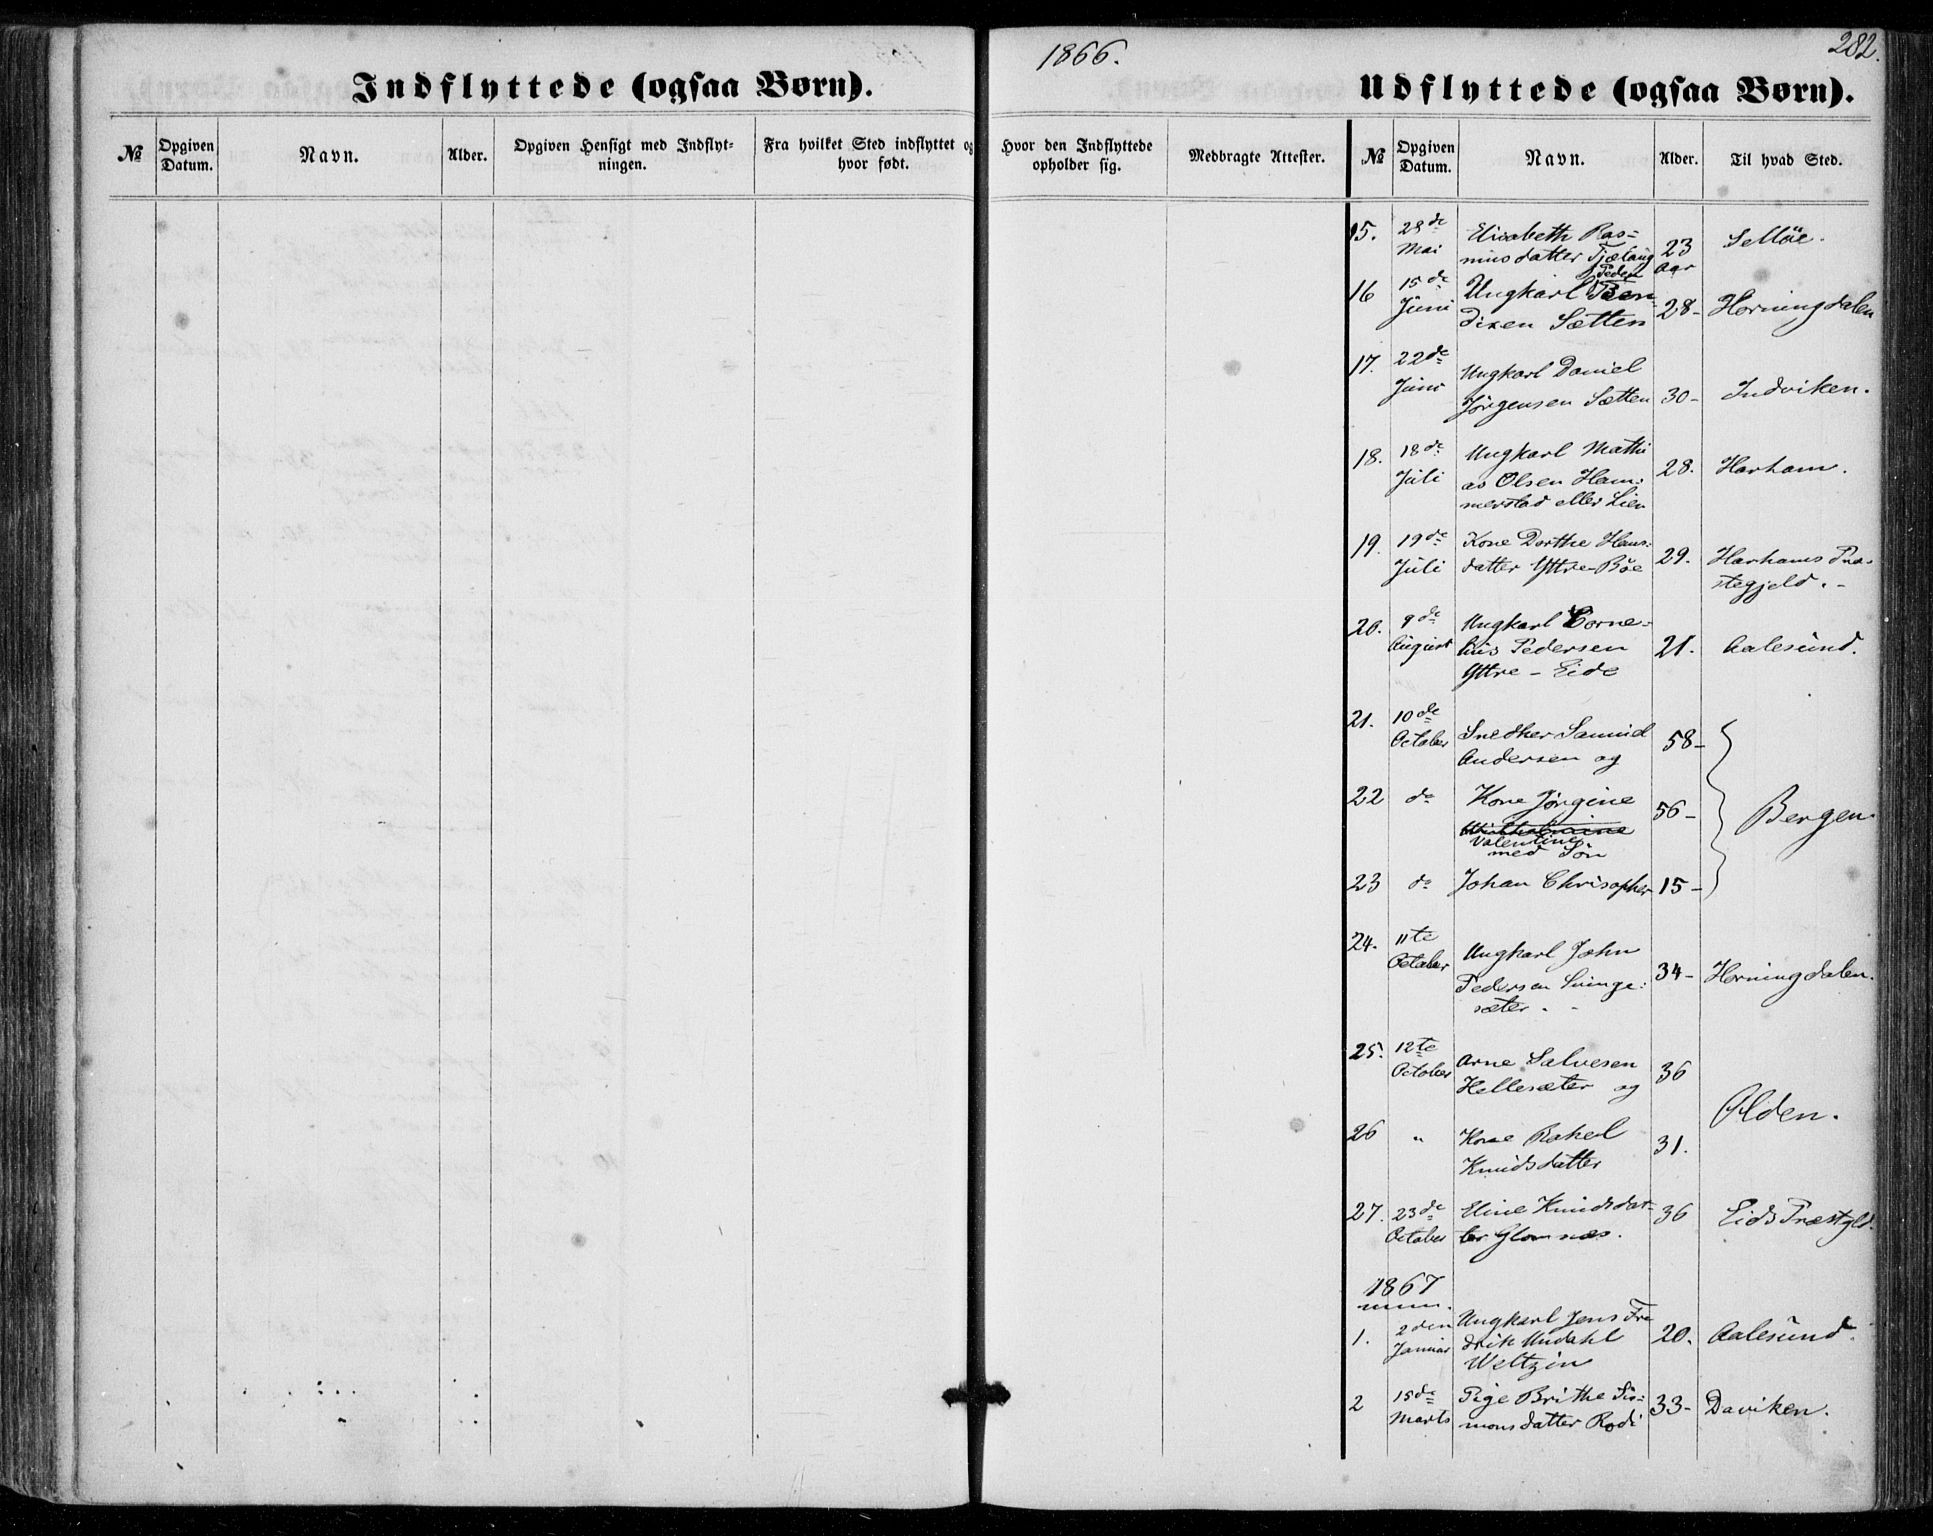 1866.
282.
Indflyttede (ogsaa Børn).
Udflyttede (ogsaa Børn).
№
Opgiven Datum.
Navn.
Alder.
Opgiven Hensigt med Indflyt-
ningen.
Fra hvilket Sted indflyttet og
hvor født.
Hvor den Indflyttede
opholder sig.
Medbragte Attester.
№
Opgiven Datum.
Navn.
Alder.
Til hvad Sted.
15. 28de Elisabeth Ras=
Mai musdatter Tjølaug 23 Aar Selløe.
16 15de Ungkarl Peder Ben-
Juni dixen Sætten 28- Horningdalen
17. 22de Ungkarl Daniel
Juni Jörgensen Sætten 30- Indviken.
18. 18de Ungkarl Mathi
Juli as Olsen Ham- 28. Harham.
merstad eller Lien
19. 19de Kone Dorthe Hans-
Juli datter Yttre-Böe 29. Harhams Præ-
stegjeld.-
20. 9de Ungkarl Corne-
August lius Pedersen 21. Aalesund.
Yttre-Eide
21. 10de
October Snedker Samuel 58-
Andersen og
22 do Kone Jørgine 56- Bergen.
Valentine
med Søn
23 do Johan Chrisopher 15-
24. 11te Ungkarl John
October Pedersen Svinge- 34- Horningdalen.
sæter.
25. 12te Arne Salvesen 36
October Hellesæter og
Olden.
26 " Kone Rakel 31.
Knudsdatter
27. 23de Eline Knudsdat- 36 Eids Præstgld.
October ter Glomnæs.
1867
1. 2den Ungkarl Jens Fre
Januar drik Undahl 20. Aalesund.
Weltzin
2 15de Pige Brithe Si-
Marts monsdatter Rodi 33- Daviken.